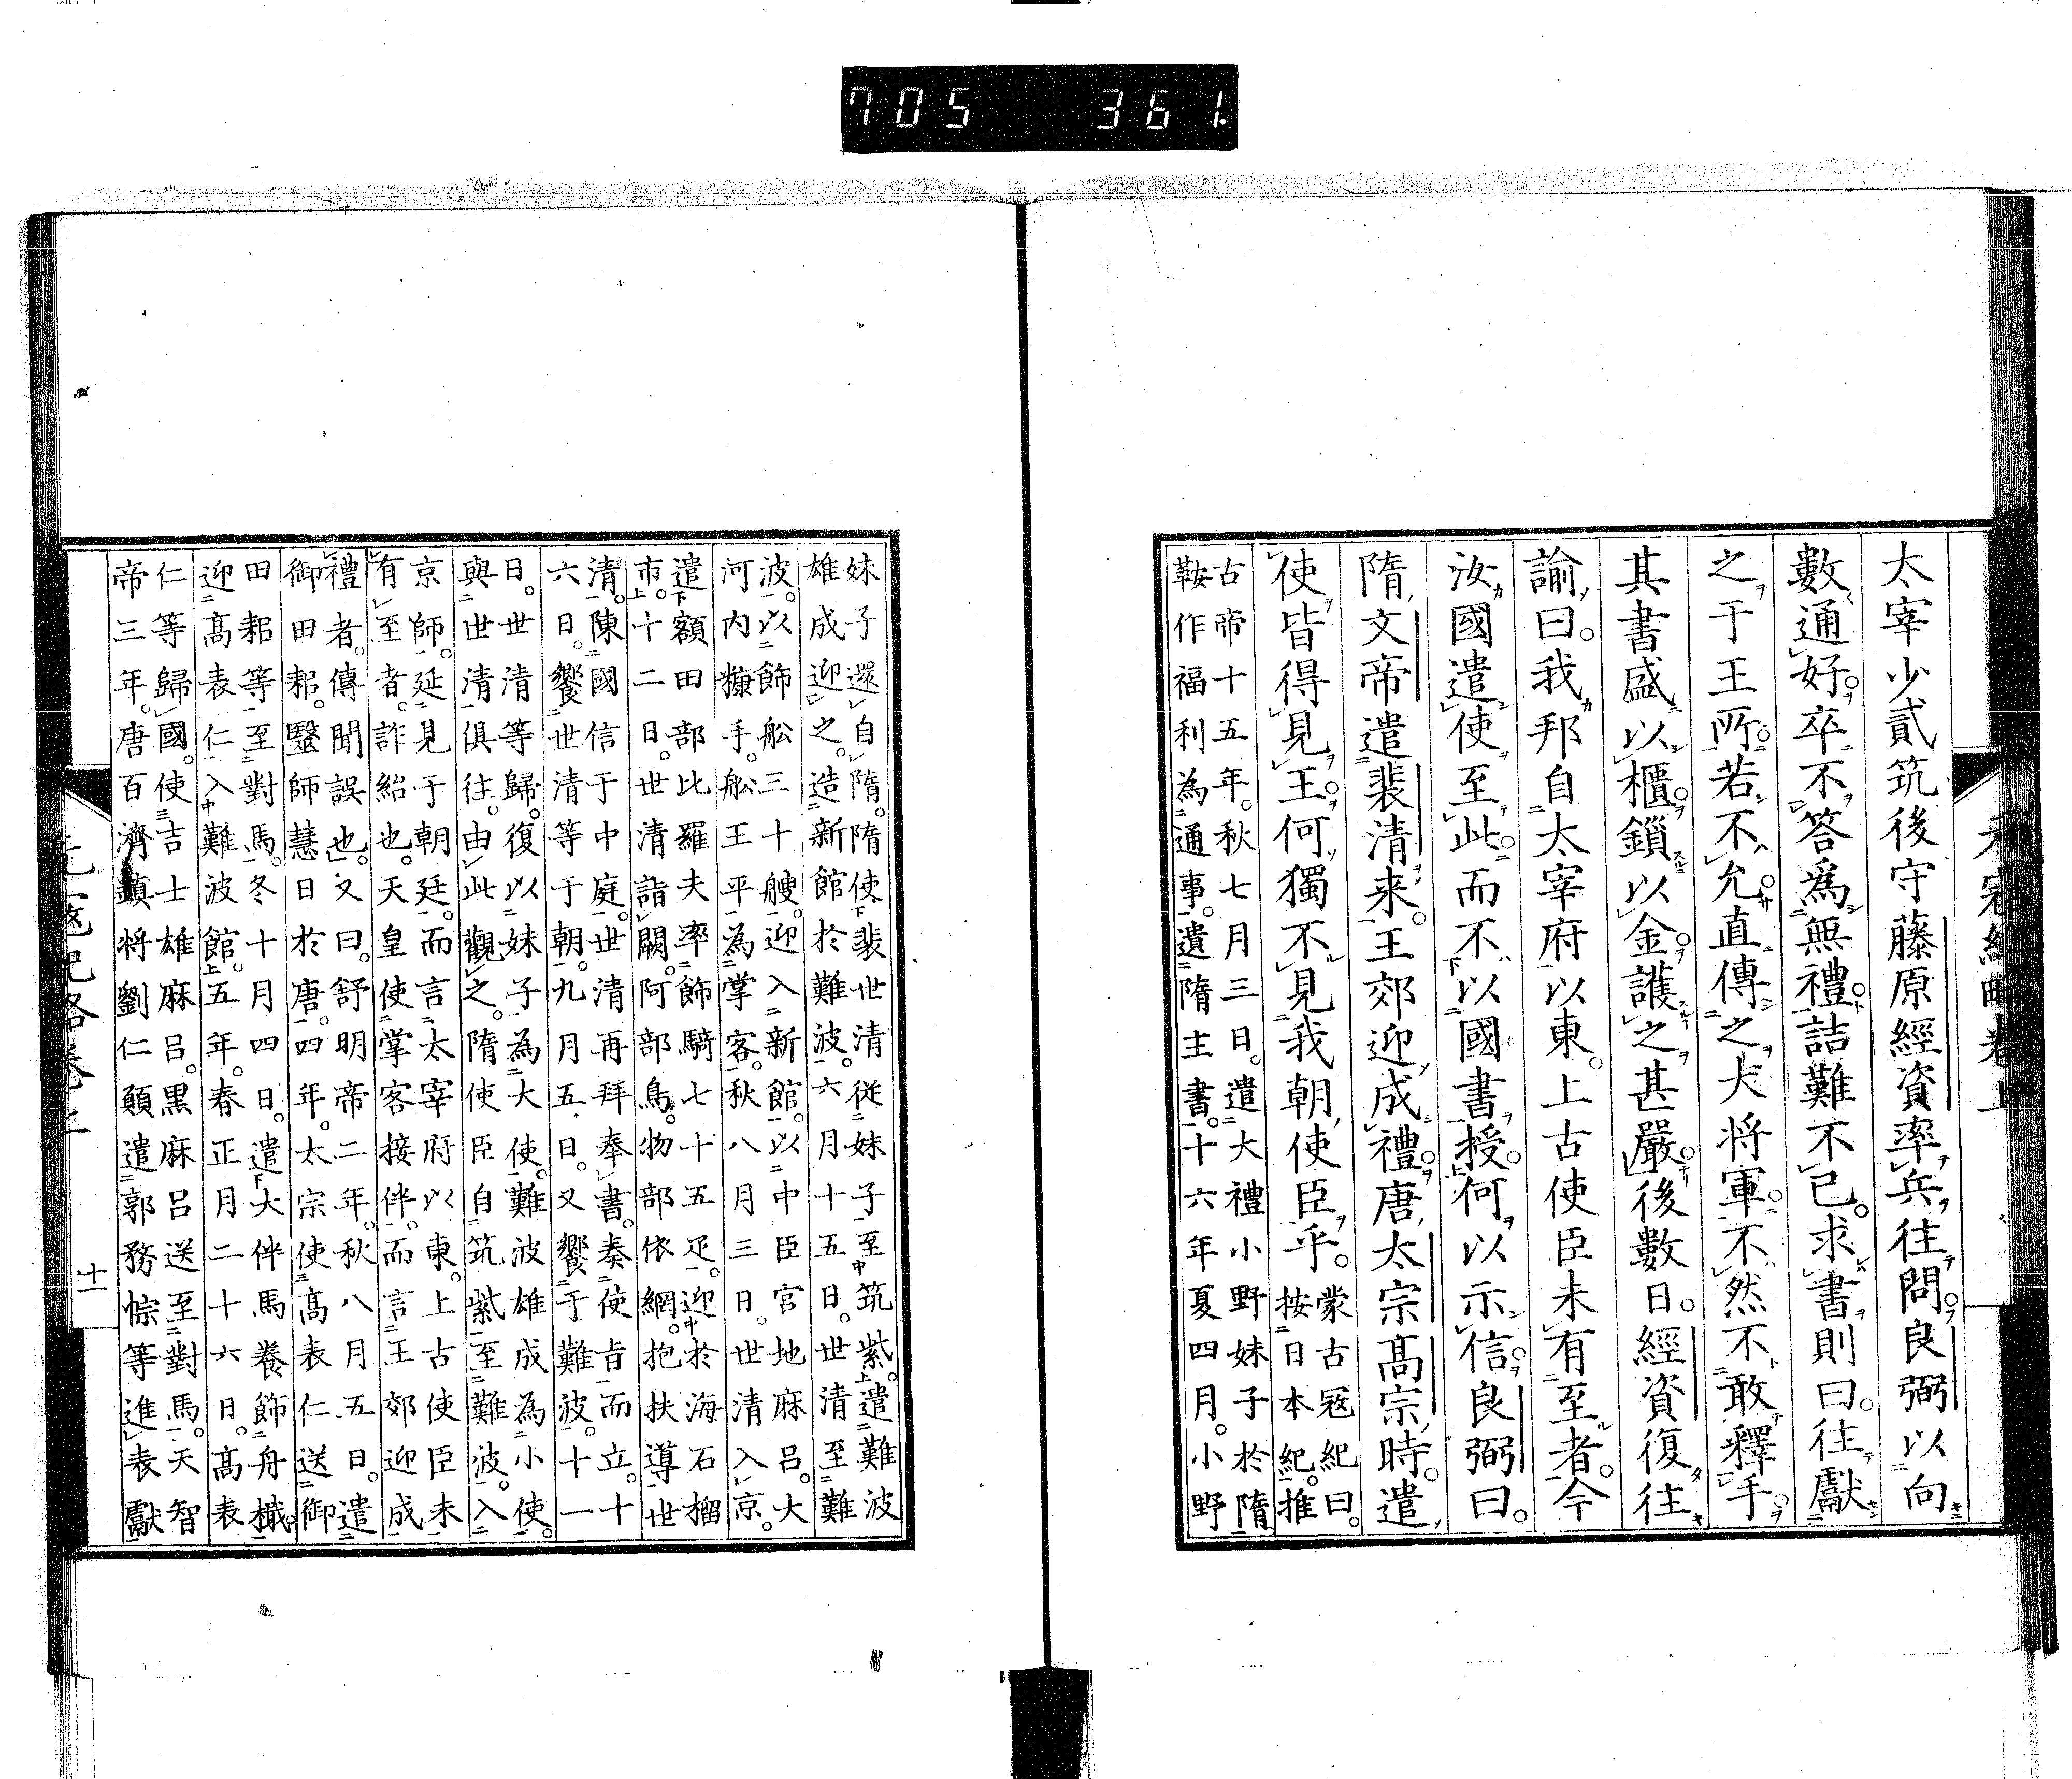 705 361.
元寇紀略卷上
太宰少貳筑後守藤原經資率兵往問良弼以向
數通好卒不答爲無禮詰難不已求書則曰往獻
之于王所若不允直傳之大将軍不然不敢釋手
其書盛以櫃鎖以金護之甚嚴後數日經資復往
諭曰我邦自太宰府以東上古使臣未有至者今
汝國遣使至此而不以國書授何以示信良弼曰
隋文帝遣裴清来王郊迎成禮唐太宗髙宗時遣
使皆得見王何獨不見我朝使臣乎
蒙古冦紀曰
按日本紀推
古帝十五年秋七月三日遣大禮小野妹子於隋
鞍作福利為通事遺隋主書十六年夏四月小野
妹子還自隋隋使裴世清従妹子至筑紫遣難波
雄成迎之造新館於難波六月十五日世清至難
波以飾舩三十艘迎入新館以中臣宮地麻呂大
河内糠手舩王平為掌客秋八月三日世清入京
遣額田部比羅夫率飾騎七十五疋迎於海石榴
市十二日世清詣闕阿部鳥物部依網抱扶導世
清陳國信于中庭世清再拜奉書奏使旨而立十
六日饗世清等于朝九月五日又饗于難波十一
日世清等歸復以妹子為大使難波雄成為小使
與世清俱往由此觀之隋使臣自筑紫至難波入
京師延見于朝廷而言太宰府以東上古使臣未
有至者詐紿也天皇使掌客接伴而言王郊迎成
禮者傳聞誤也又曰舒明帝二年秋八月五日遣
御田耜毉師慧日於唐四年太宗使髙表仁送御
田耜等至對馬冬十月四日遣大伴馬養飾舟檝
迎髙表仁入難波館五年春正月二十六日髙表
仁等歸國使吉士雄麻呂黒麻呂送至對馬天智
帝三年唐百濟鎮将劉仁願遣郭務悰等進表獻
元寇紀略卷上
十一